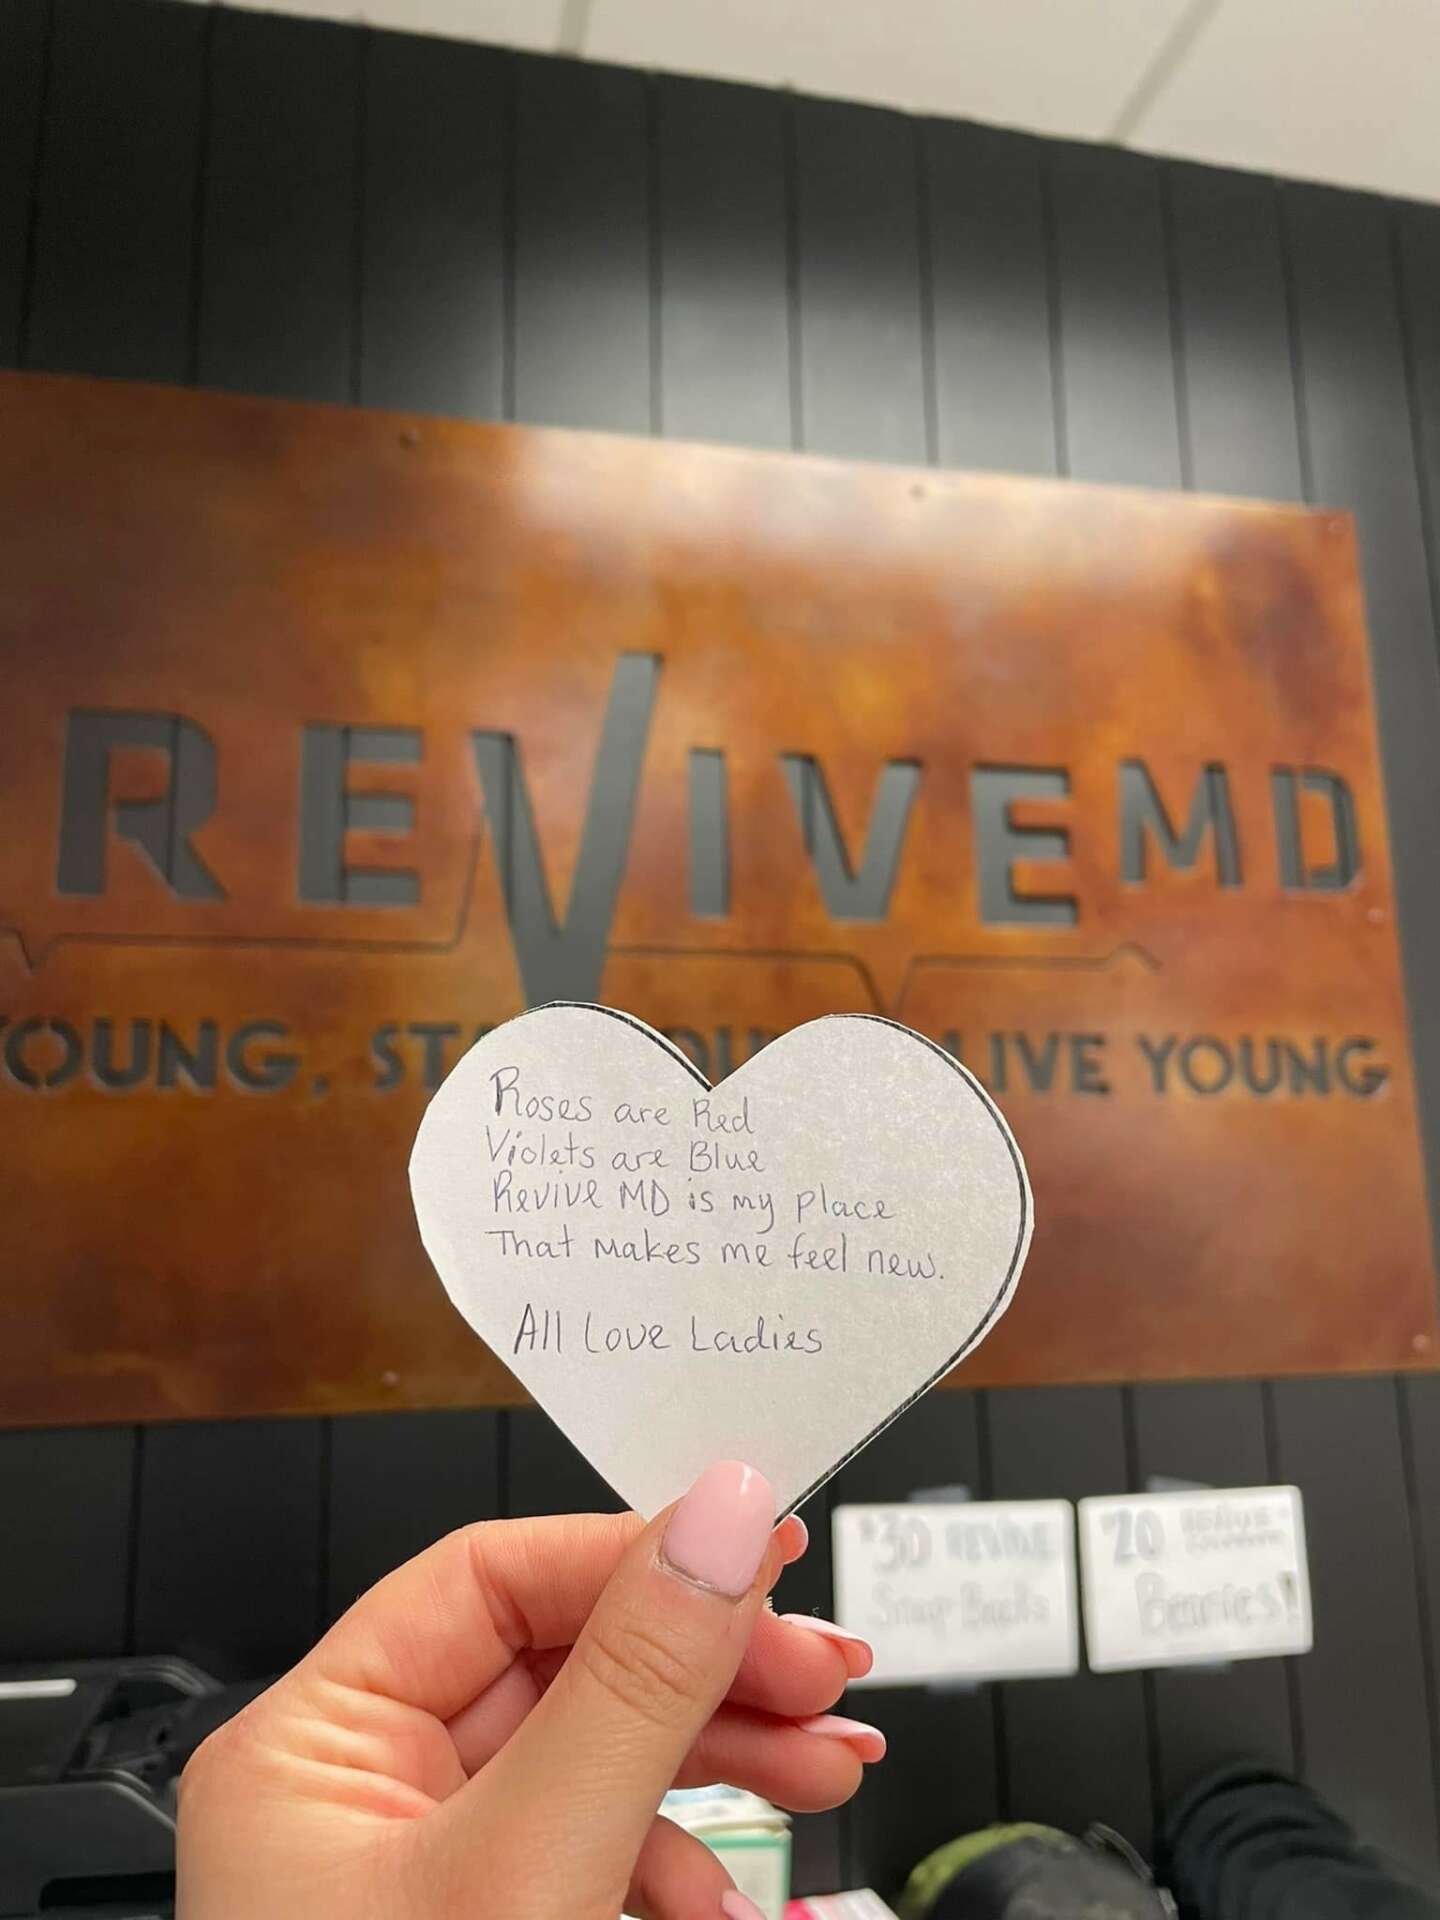 REVIVE MD
YOUNG, LIVE YOUNG
Roses are Red
Violets are Blue
Revive MD is my place
That makes me feel new.
All Love Ladies
$30 REVIVE
Snap Backs
$20 REVIVE
Beanies!